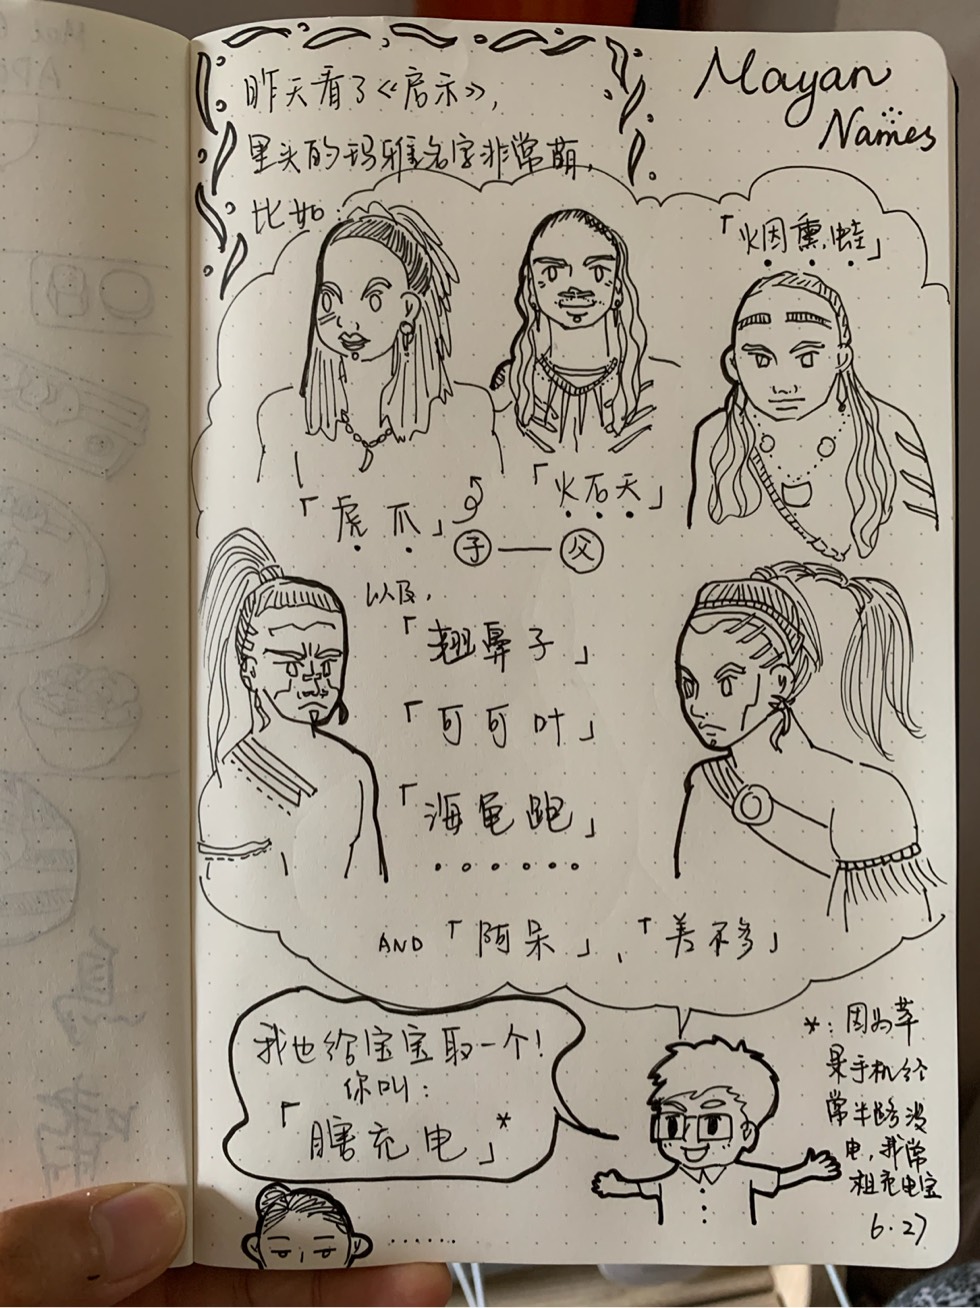 Mayan
Names
昨天看了《启示》,
里头的玛雅名字非常萌,
比如:
「烟熏蛙」
「虎爪」
「火石天」
子——父
以及,
「翘鼻子」
「可可叶」
「海龟跑」
......
AND「阿呆」、「美不多」
我也给宝宝取一个!
你叫:
「瞎充电」*
......
*:因为苹
果手机经
常半路没
电,我常
租充电宝
6.27